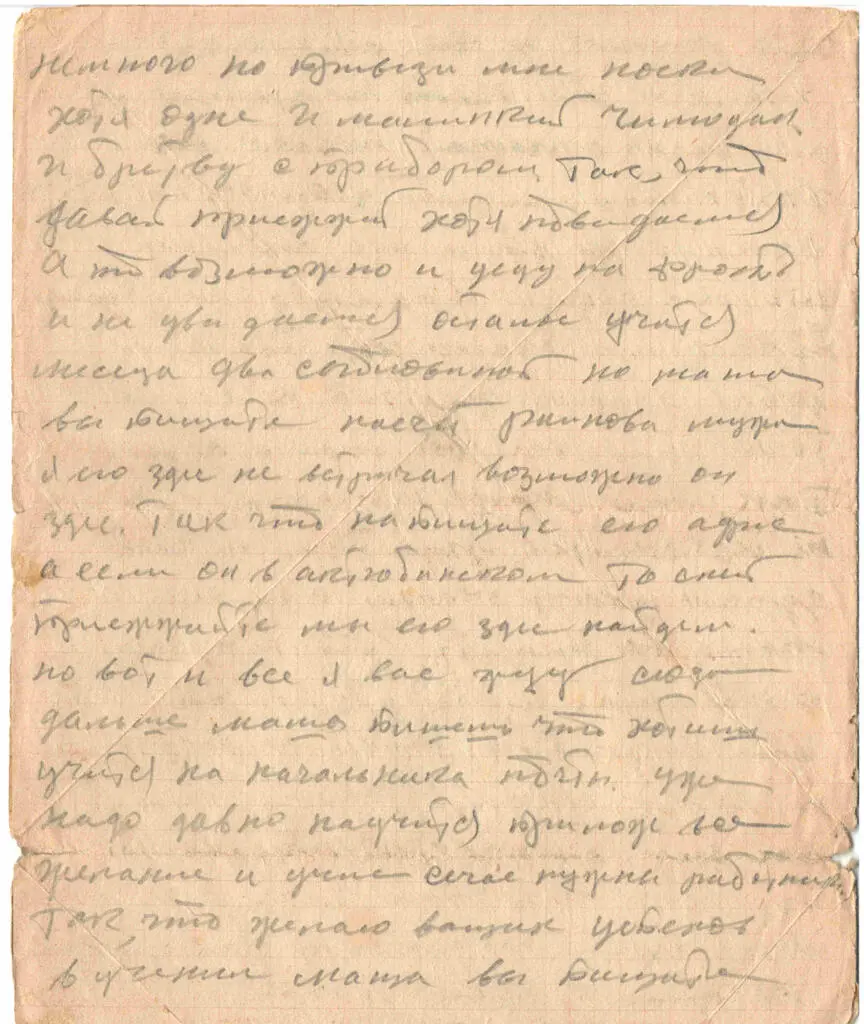 немного но привези мне носки
хотя одне и малинкий чимодан
и бритву с прибором, так, что
давай приежжай хотя повидаемся
А то возможно и уеду на фронт
и не увидаемся осталос учится
месеца два с половиной но маша
вы пишите насчет мужа
я его зде не встречал возможно он
зде. Так что напишите его адрес
а если он в актюбинском то
приежжайте мы его зде найдем.
но вот и все я вас жду сюда
дальше маша пишеш что хотиш
учится на начальника почты уже
надо давно научится прилож все
желание и учис сечас нужны работники
Так что желаю ваших успехов
в учении маша вы пишите